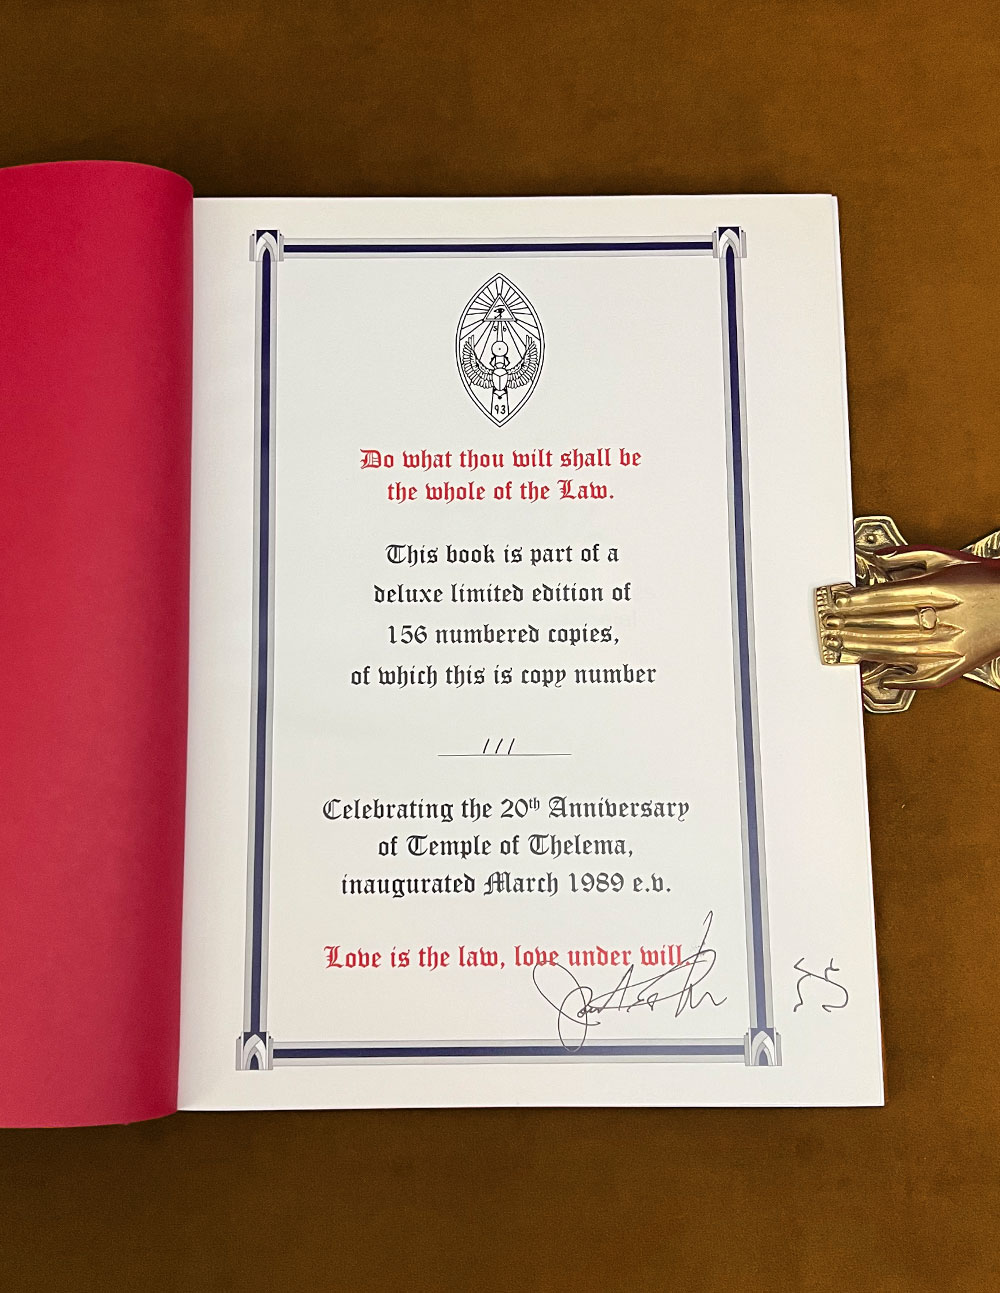 93
Do what thou wilt shall be
the whole of the Law.
This book is part of a
deluxe limited edition of
156 numbered copies,
of which this is copy number
111
Celebrating the 20th Anniversary
of Temple of Thelema,
inaugurated March 1989 e.v.
Love is the law, love under will.